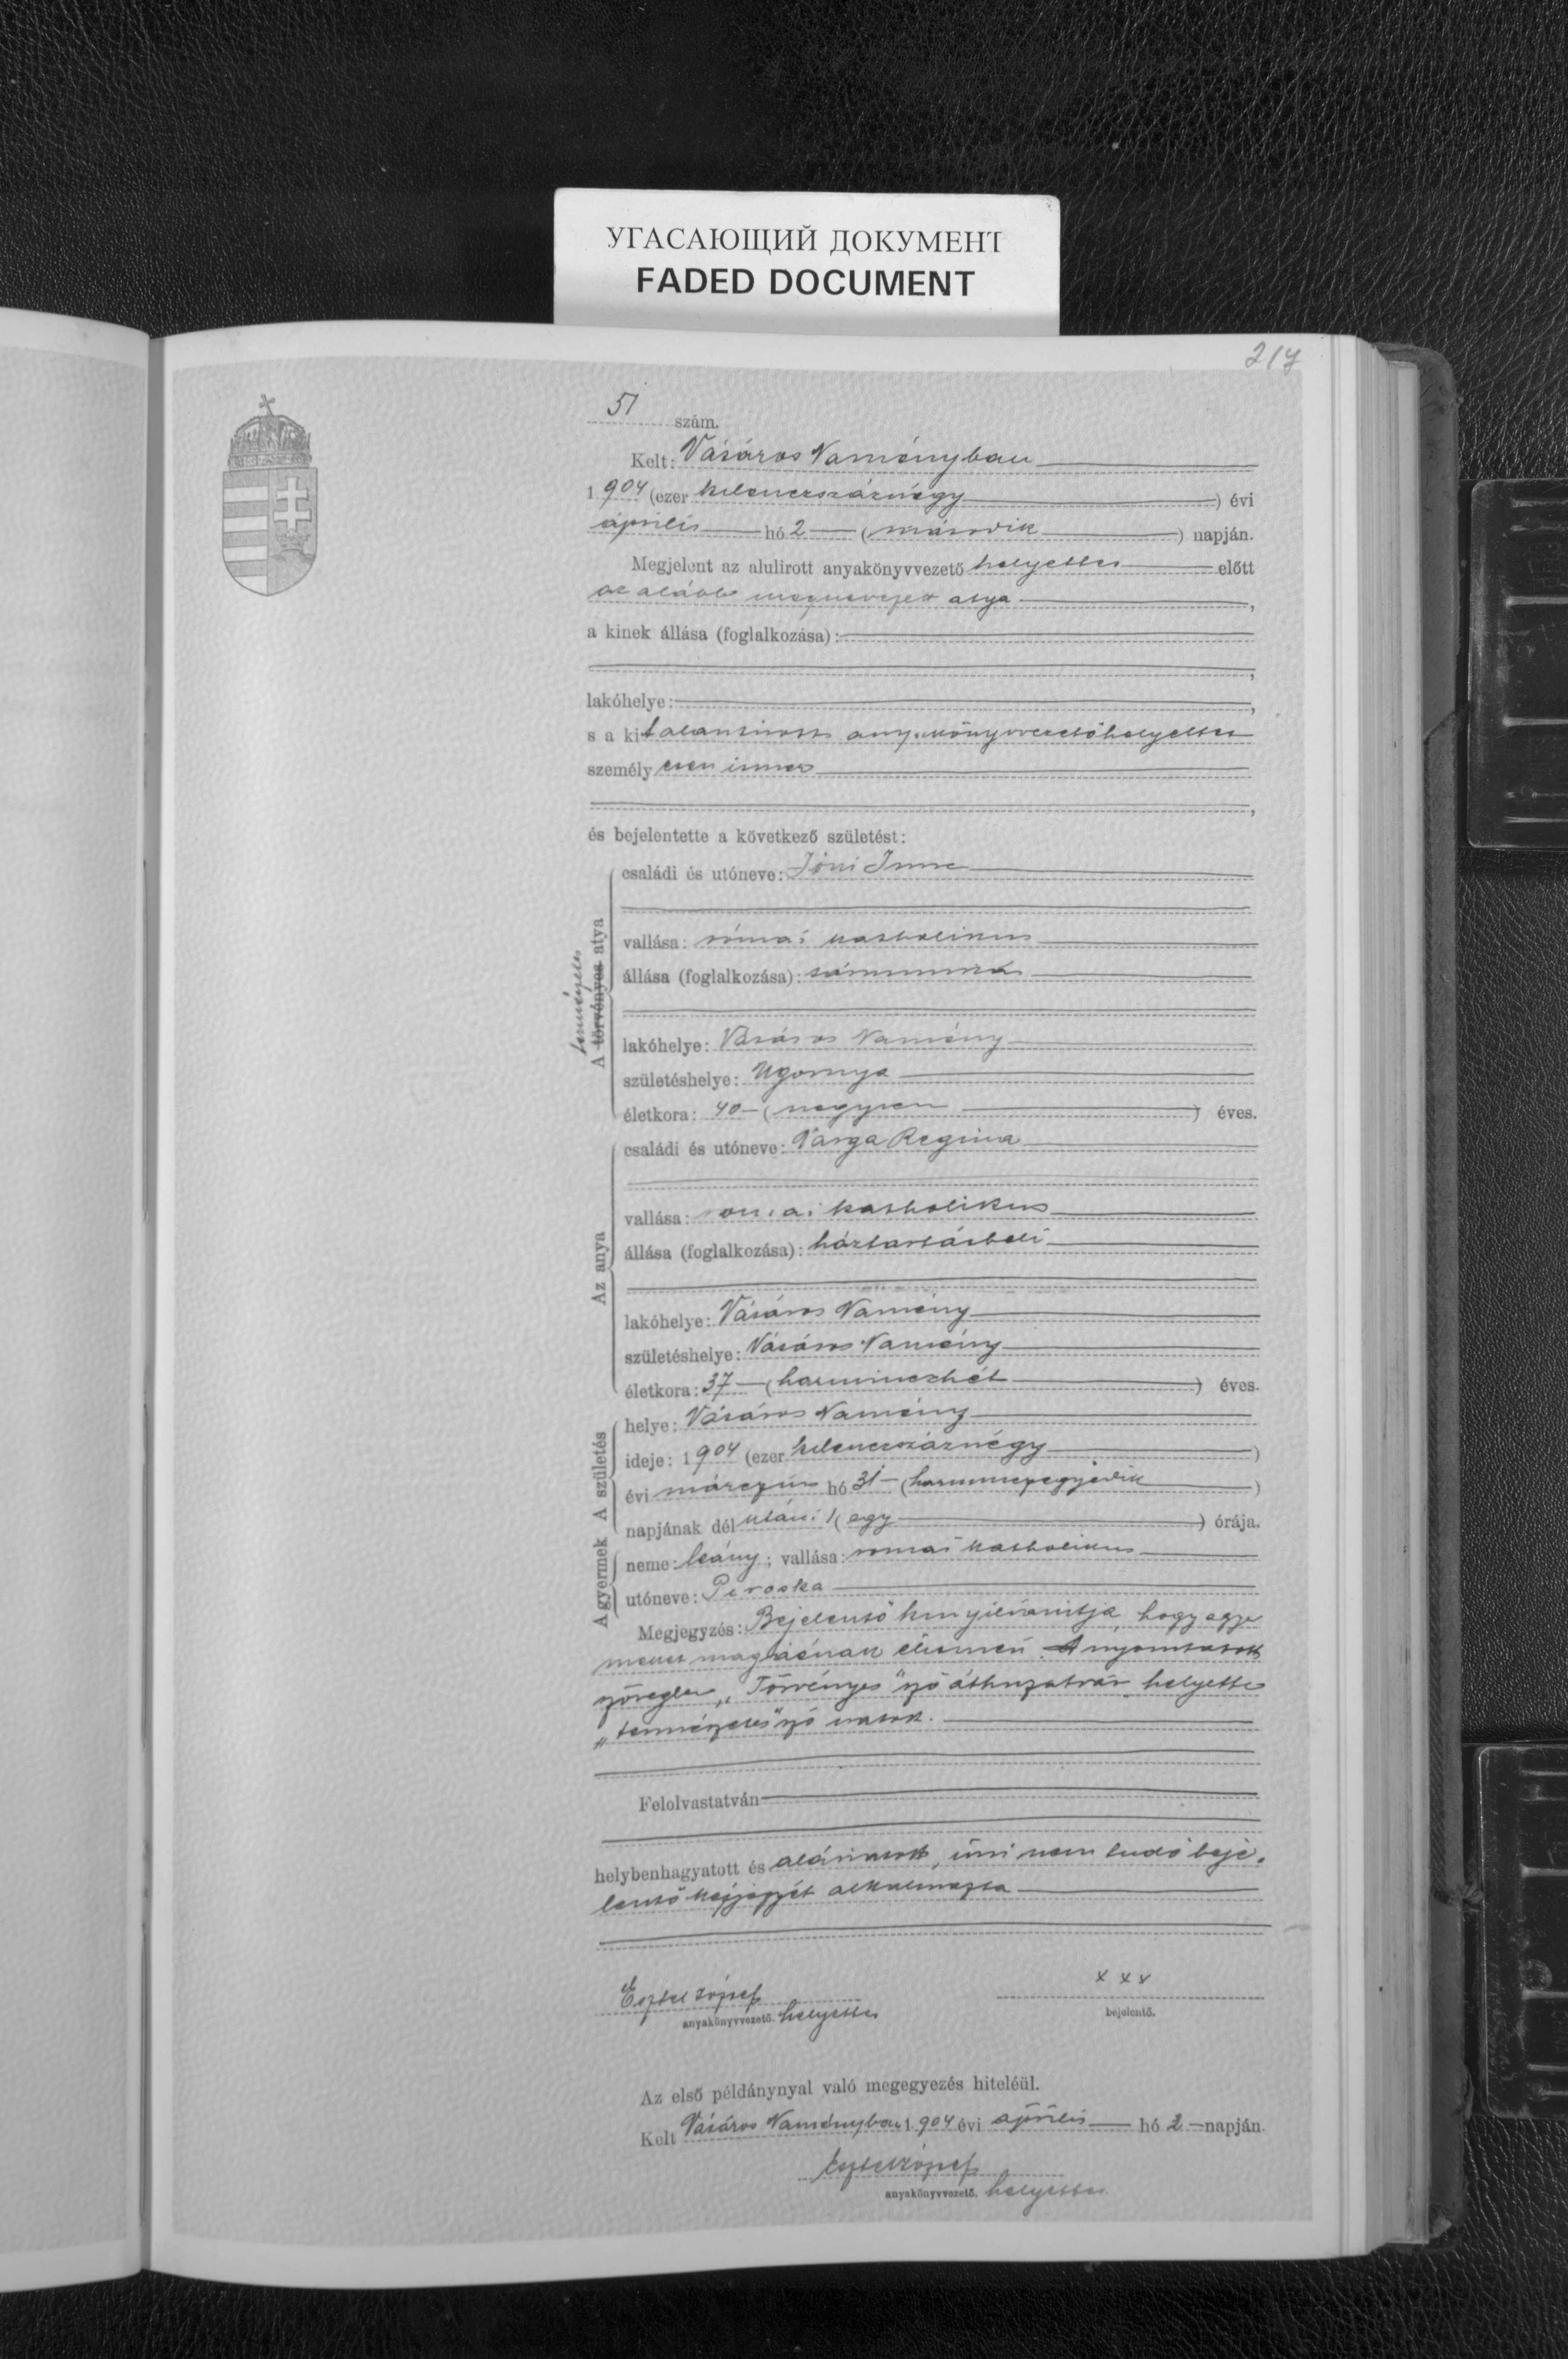 УГАСАЮЩИЙ ДОКУМЕНТ
FADED DOCUMENT
217
51 szám.
Kelt: Vásáros Naményban
1904 (ezer kilenczszáznégy) évi
április hó 2 (második) napján.
Megjelent az alulirott anyakönyvvezető helyettes előtt
az alább megnevezett atya,
a kinek állása (foglalkozása):
lakóhelye:
s a kit alantirott anyakönyvvezetőhelyettes
személyesen ismer
és bejelentette a következő születést:
A törvényes atya
természetes
családi és utóneve: Jóni Imre
vallása: római katholikus
állása (foglalkozása):
lakóhelye: Vásáros Namény
születéshelye: Ugornya
életkora: 40 (negyven) éves.
Az anya
családi és utóneve: Varga Regina
vallása: római katholikus
állása (foglalkozása): háztartásbeli
lakóhelye: Vásáros Namény
születéshelye: Vásáros Namény
életkora: 37 (harminczhét) éves.
A születés
helye: Vásáros Namény
ideje: 1904 (ezer kilenczszáznégy)
évi márczius hó 31 (harminczegyedik)
napjának dél után: 1 (egy) órája.
A gyermek
neme: leány; vallása: romai katholikus
utóneve: Piroska
Megjegyzés: Bejelentő kinyilvánitja, hogy a gyer
meket magáénak elismeri. A nyomtatott
szövegben „Törvényes" szó áthuzatván helyette
„természetes" szó iratott.
Felolvastatván
helybenhagyatott és aláiratott, irni nem tudó beje-
lentő kézjegyét alkalmazta
Esztel József
anyakönyvvezető. helyettes
x x x
bejelentő.
Az első példánynyal való megegyezés hiteléül.
Kelt Vásáros Naményban 1904 évi április hó 2 napján.
Esztel József
anyakönyvvezető. helyettes